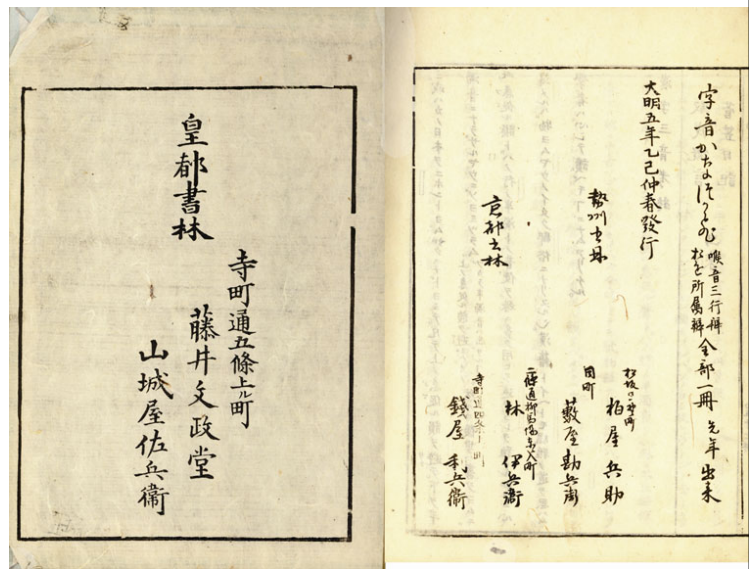 字音
喉音三行辨
おを所属辨
全部一冊 先年出来
天明五年乙巳仲春發行
勢州書林
松坂日野町
柏屋兵助
同町
藪屋勘兵衛
京都書林
二條通柳馬場東入町
林伊兵衛
寺町通
錢屋利兵衛
皇都書林
寺町通五條上ル町
藤井文政堂
山城屋佐兵衞